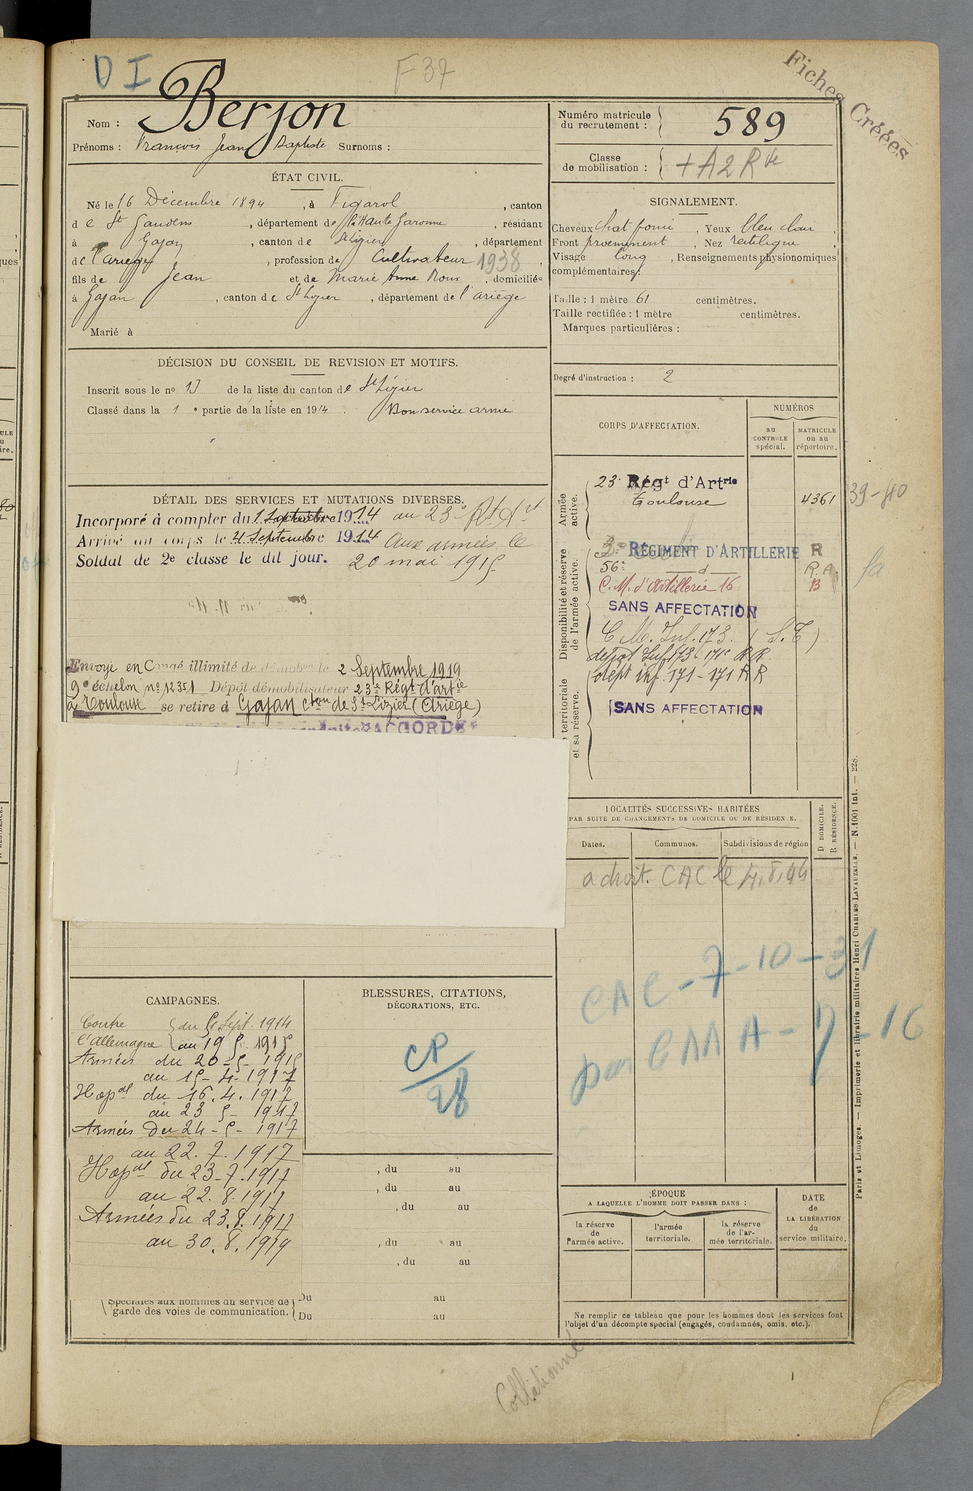 D I
F 37
Fiches Créées
Nom : Berjon
Prénoms : François Jean Baptiste Surnoms :
Numéro matricule du recrutement : 589
Classe de mobilisation :
ÉTAT CIVIL.
Né le 16 Décembre 1894, à Figarol, canton
de St Gaudens, département de la Haute Garonne, résidant
à Gajan, canton de St Lizier, département
de l'Ariège, profession de Cultivateur 1938
fils de Jean et de Marie Anne Roux, domiciliés
à Gajan, canton de St Lizier, département de l'ariège
Marié à
SIGNALEMENT.
Cheveux chat foncé, Yeux bleu clair,
Front proeminent, Nez rectiligne,
Visage long, Renseignements physionomiques
complémentaires :
Taille : 1 mètre 61 centimètres.
Taille rectifiée : 1 mètre centimètres.
Marques particulières :
Degré d'instruction : 2
DÉCISION DU CONSEIL DE REVISION ET MOTIFS.
Inscrit sous le no de la liste du canton de St Lizier
Classé dans la 1e partie de la liste en 1914. Bon service armé
DÉTAIL DES SERVICES ET MUTATIONS DIVERSES.
Incorporé à compter du 1 Septembre 1914 au 23e
Arrivé au corps le 4 Septembre 1914 Aux armées le
Soldat de 2e classe le dit jour. 20 mai 1915
Envoyé en Congé illimité de démobon le 2 Septembre 1919
9e échelon no 12351 Dépôt démobilisateur 23e Régt d'artie
à Toulouse se retire à Gajan cton de St Lizier (Ariège)
ACCORDÉ
CORPS D'AFFECTATION.
NUMÉROS
au CONTRÔLE spécial.
MATRICULE ou au répertoire.
Armée active.
23e Régt d'Artrie
Toulouse
4361
39-40
Disponibilité et réserve de l'armée active.
3e RÉGIMENT D'ARTILLERIE R
56e d R.A.
C.M. d'Artillerie 16 B
SANS AFFECTATION
C M. Inf. 173 (S.T)
dépôt inf 171 - 171 R R
territoriale et sa réserve.
SANS AFFECTATION
LOCALITÉS SUCCESSIVES HABITÉES
PAR SUITE DE CHANGEMENTS DE DOMICILE OU DE RÉSIDENCE.
Dates.
Communes.
Subdivisions de région
D DOMICILE.
R RÉSIDENCE.
a droit. CAC le 4.8.44
CAC - 7-10-31
CAMPAGNES.
Contre l'Allemagne
du 4 Sept. 1914
au 19 5 - 1915
Armées du 20-5- 1915
au 15-4-1917
Hopal du 16.4.1917
au 23 5 - 1917
Armées du 24-5-1917
au 22.7.1917
Hopal du 23-7.1917
au 22.8.1917
Armées du 23.8.1917
au 30.8.1919
Spéciales aux hommes du service de garde des voies de communication.
Du au
Du au
BLESSURES, CITATIONS,
DÉCORATIONS, ETC.
CP
28
, du au
, du au
, du au
, du au
, du au
ÉPOQUE
A LAQUELLE L'HOMME DOIT PASSER DANS :
la réserve de l'armée active.
l'armée territoriale.
la réserve de l'armée territoriale.
DATE de LA LIBÉRATION du service militaire.
Ne remplir ce tableau que pour les hommes dont les services font
l'objet d'un décompte spécial (engagés, condamnés, omis, etc.).
Paris et Limoges. — Imprimerie et librairie militaires Henri CHARLES-LAVAUZELLE. — N. 1001 int. — 228.
Collationné